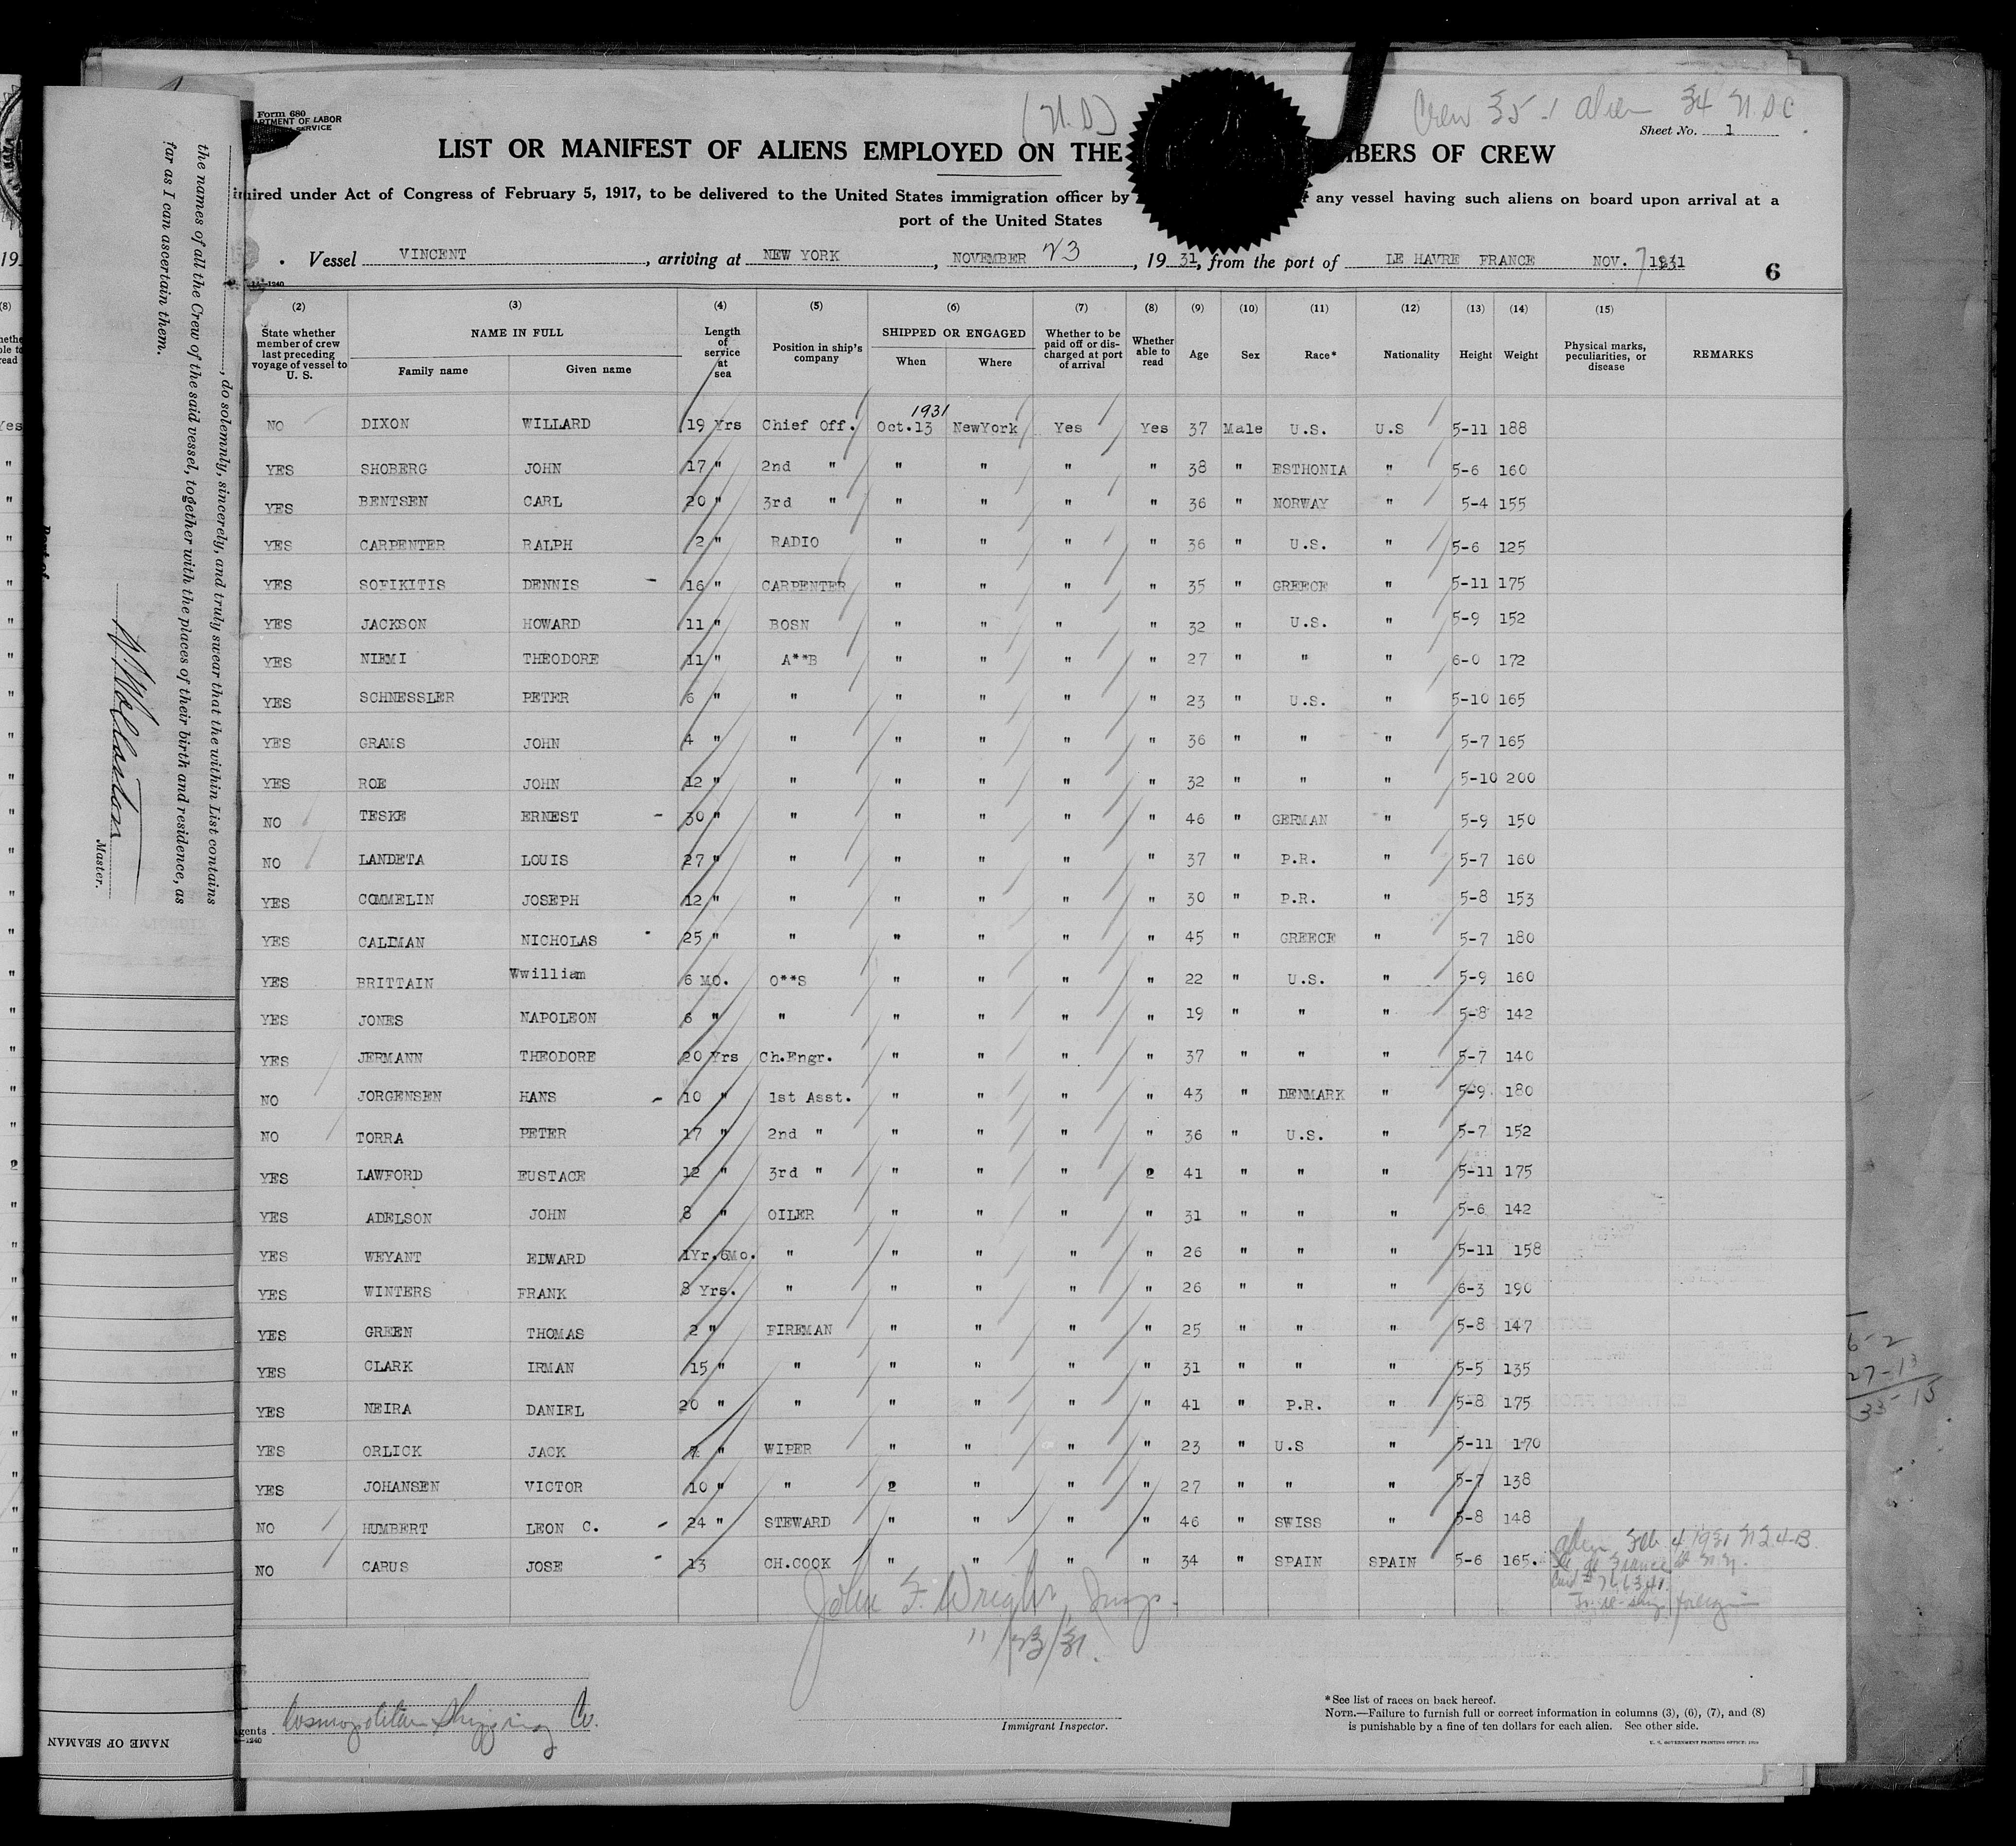 (N. D)
Crew 35 - 1 alien 34 U.S.C.
Form 680
ARTMENT OF LABOR
SERVICE
Sheet No. 1
LIST OR MANIFEST OF ALIENS EMPLOYED ON THE MBERS OF CREW
uired under Act of Congress of February 5, 1917, to be delivered to the United States immigration officer by any vessel having such aliens on board upon arrival at a
port of the United States
Vessel VINCENT, arriving at NEW YORK, NOVEMBER 23, 1931, from the port of LE HAVRE FRANCE NOV. 7 1931
6
(2) (3) (4) (5) (6) (7) (8) (9) (10) (11) (12) (13) (14) (15)
State whether member of crew last preceding voyage of vessel to U. S. | NAME IN FULL | Family name | Given name | Length of service at sea | Position in ship's company | SHIPPED OR ENGAGED | When | Where | Whether to be paid off or discharged at port of arrival | Whether able to read | Age | Sex | Race* | Nationality | Height | Weight | Physical marks, peculiarities, or disease | REMARKS
1931
NO DIXON WILLARD 19 Yrs Chief Off. Oct.13 NewYork Yes Yes 37 Male U.S. U.S 5-11 188
YES SHOBERG JOHN 17 " 2nd " " " " " 38 " ESTHONIA " 5-6 160
YES BENTSEN CARL 20 " 3rd " " " " " 36 " NORWAY " 5-4 155
YES CARPENTER RALPH 2 " RADIO " " " " 36 " U.S. " 5-6 125
YES SOFIKITIS DENNIS - 16 " CARPENTER " " " " 35 " GREECE " 5-11 175
YES JACKSON HOWARD 11 " BOSN " " " " 32 " U.S. " 5-9 152
YES NIEMI THEODORE 11 " A**B " " " " 27 " " " 6-0 172
YES SCHNESSLER PETER 6 " " " " " " 23 " U.S. " 5-10 165
YES GRAMS JOHN 4 " " " " " " 36 " " " 5-7 165
YES ROE JOHN 12 " " " " " " 32 " " " 5-10 200
NO TESKE ERNEST - 30 " " " " " " 46 " GERMAN " 5-9 150
NO LANDETA LOUIS 27 " " " " " " 37 " P.R. " 5-7 160
YES COMMELIN JOSEPH 12 " " " " " " 30 " P.R. " 5-8 153
YES CALIMAN NICHOLAS 25 " " " " " " 45 " GREECE " 5-7 180
YES BRITTAIN Wwilliam 6 MO. O**S " " " " 22 " U.S. " 5-9 160
YES JONES NAPOLEON 6 " " " " " " 19 " " " 5-8 142
YES JERMANN THEODORE 20 Yrs Ch.Engr. " " " " 37 " " " 5-7 140
NO JORGENSEN HANS - 10 " 1st Asst. " " " " 43 " DENMARK " 5-9 180
NO TORRA PETER 17 " 2nd " " " " " 36 " U.S. " 5-7 152
YES LAWFORD EUSTACE 12 " 3rd " " " " 2 41 " " " 5-11 175
YES ADELSON JOHN 8 " OILER " " " " 31 " " " 5-6 142
YES WEYANT EDWARD 1Yr.6Mo. " " " " " 26 " " " 5-11 158
YES WINTERS FRANK 8 Yrs. " " " " " 26 " " " 6-3 190
YES GREEN THOMAS 2 " FIREMAN " " " " 25 " " " 5-8 147
YES CLARK IRMAN 15 " " " " " " 31 " " " 5-5 135
YES NEIRA DANIEL 20 " " " " " " 41 " P.R. " 5-8 175
YES ORLICK JACK 7 " WIPER " " " " 23 " U.S " 5-11 170
YES JOHANSEN VICTOR 10 " " 2 " " " 27 " " " 5-7 138
NO HUMBERT LEON C. - 24 " STEWARD " " " " 46 " SWISS " 5-8 148
NO CARUS JOSE - 13 CH.COOK " " " " 34 " SPAIN SPAIN 5-6 165.
alien Feb. 4 1931
France
foreign
John F. Wright, Insp.
11/23/31.
Immigrant Inspector.
gents Cosmopolitan Shipping Co.
-1240
*See list of races on back hereof.
NOTE.—Failure to furnish full or correct information in columns (3), (6), (7), and (8)
is punishable by a fine of ten dollars for each alien. See other side.
, do solemnly, sincerely, and truly swear that the within List contains
the names of all the Crew of the said vessel, together with the places of their birth and residence, as
far as I can ascertain them.
Master.
NAME OF SEAMAN
6-2
27-13
33-15